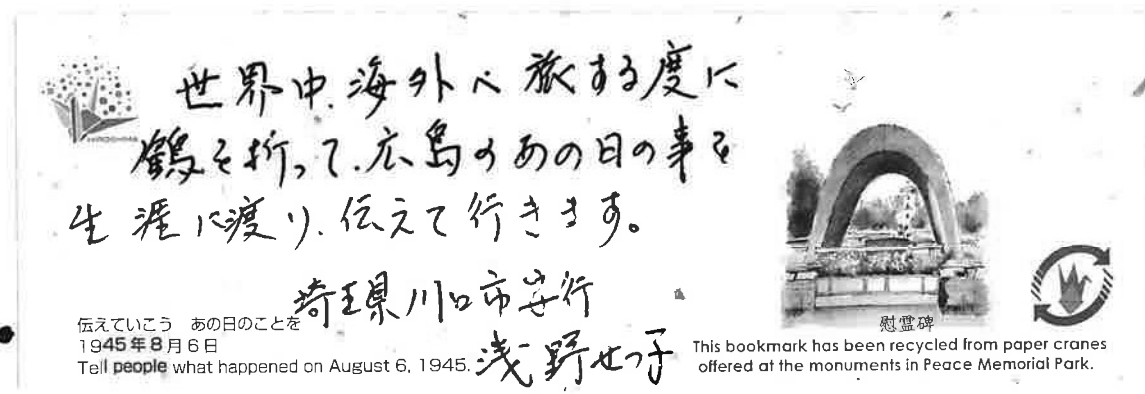 世界中、海外へ旅する度に
鶴を折って、広島のあの日の事を
生涯に渡り、伝えて行きます。
埼玉県川口市安行
浅野せつ子
伝えていこう　あの日のことを
1945年8月6日
Tell people what happened on August 6, 1945.
慰霊碑
This bookmark has been recycled from paper cranes
offered at the monuments in Peace Memorial Park.